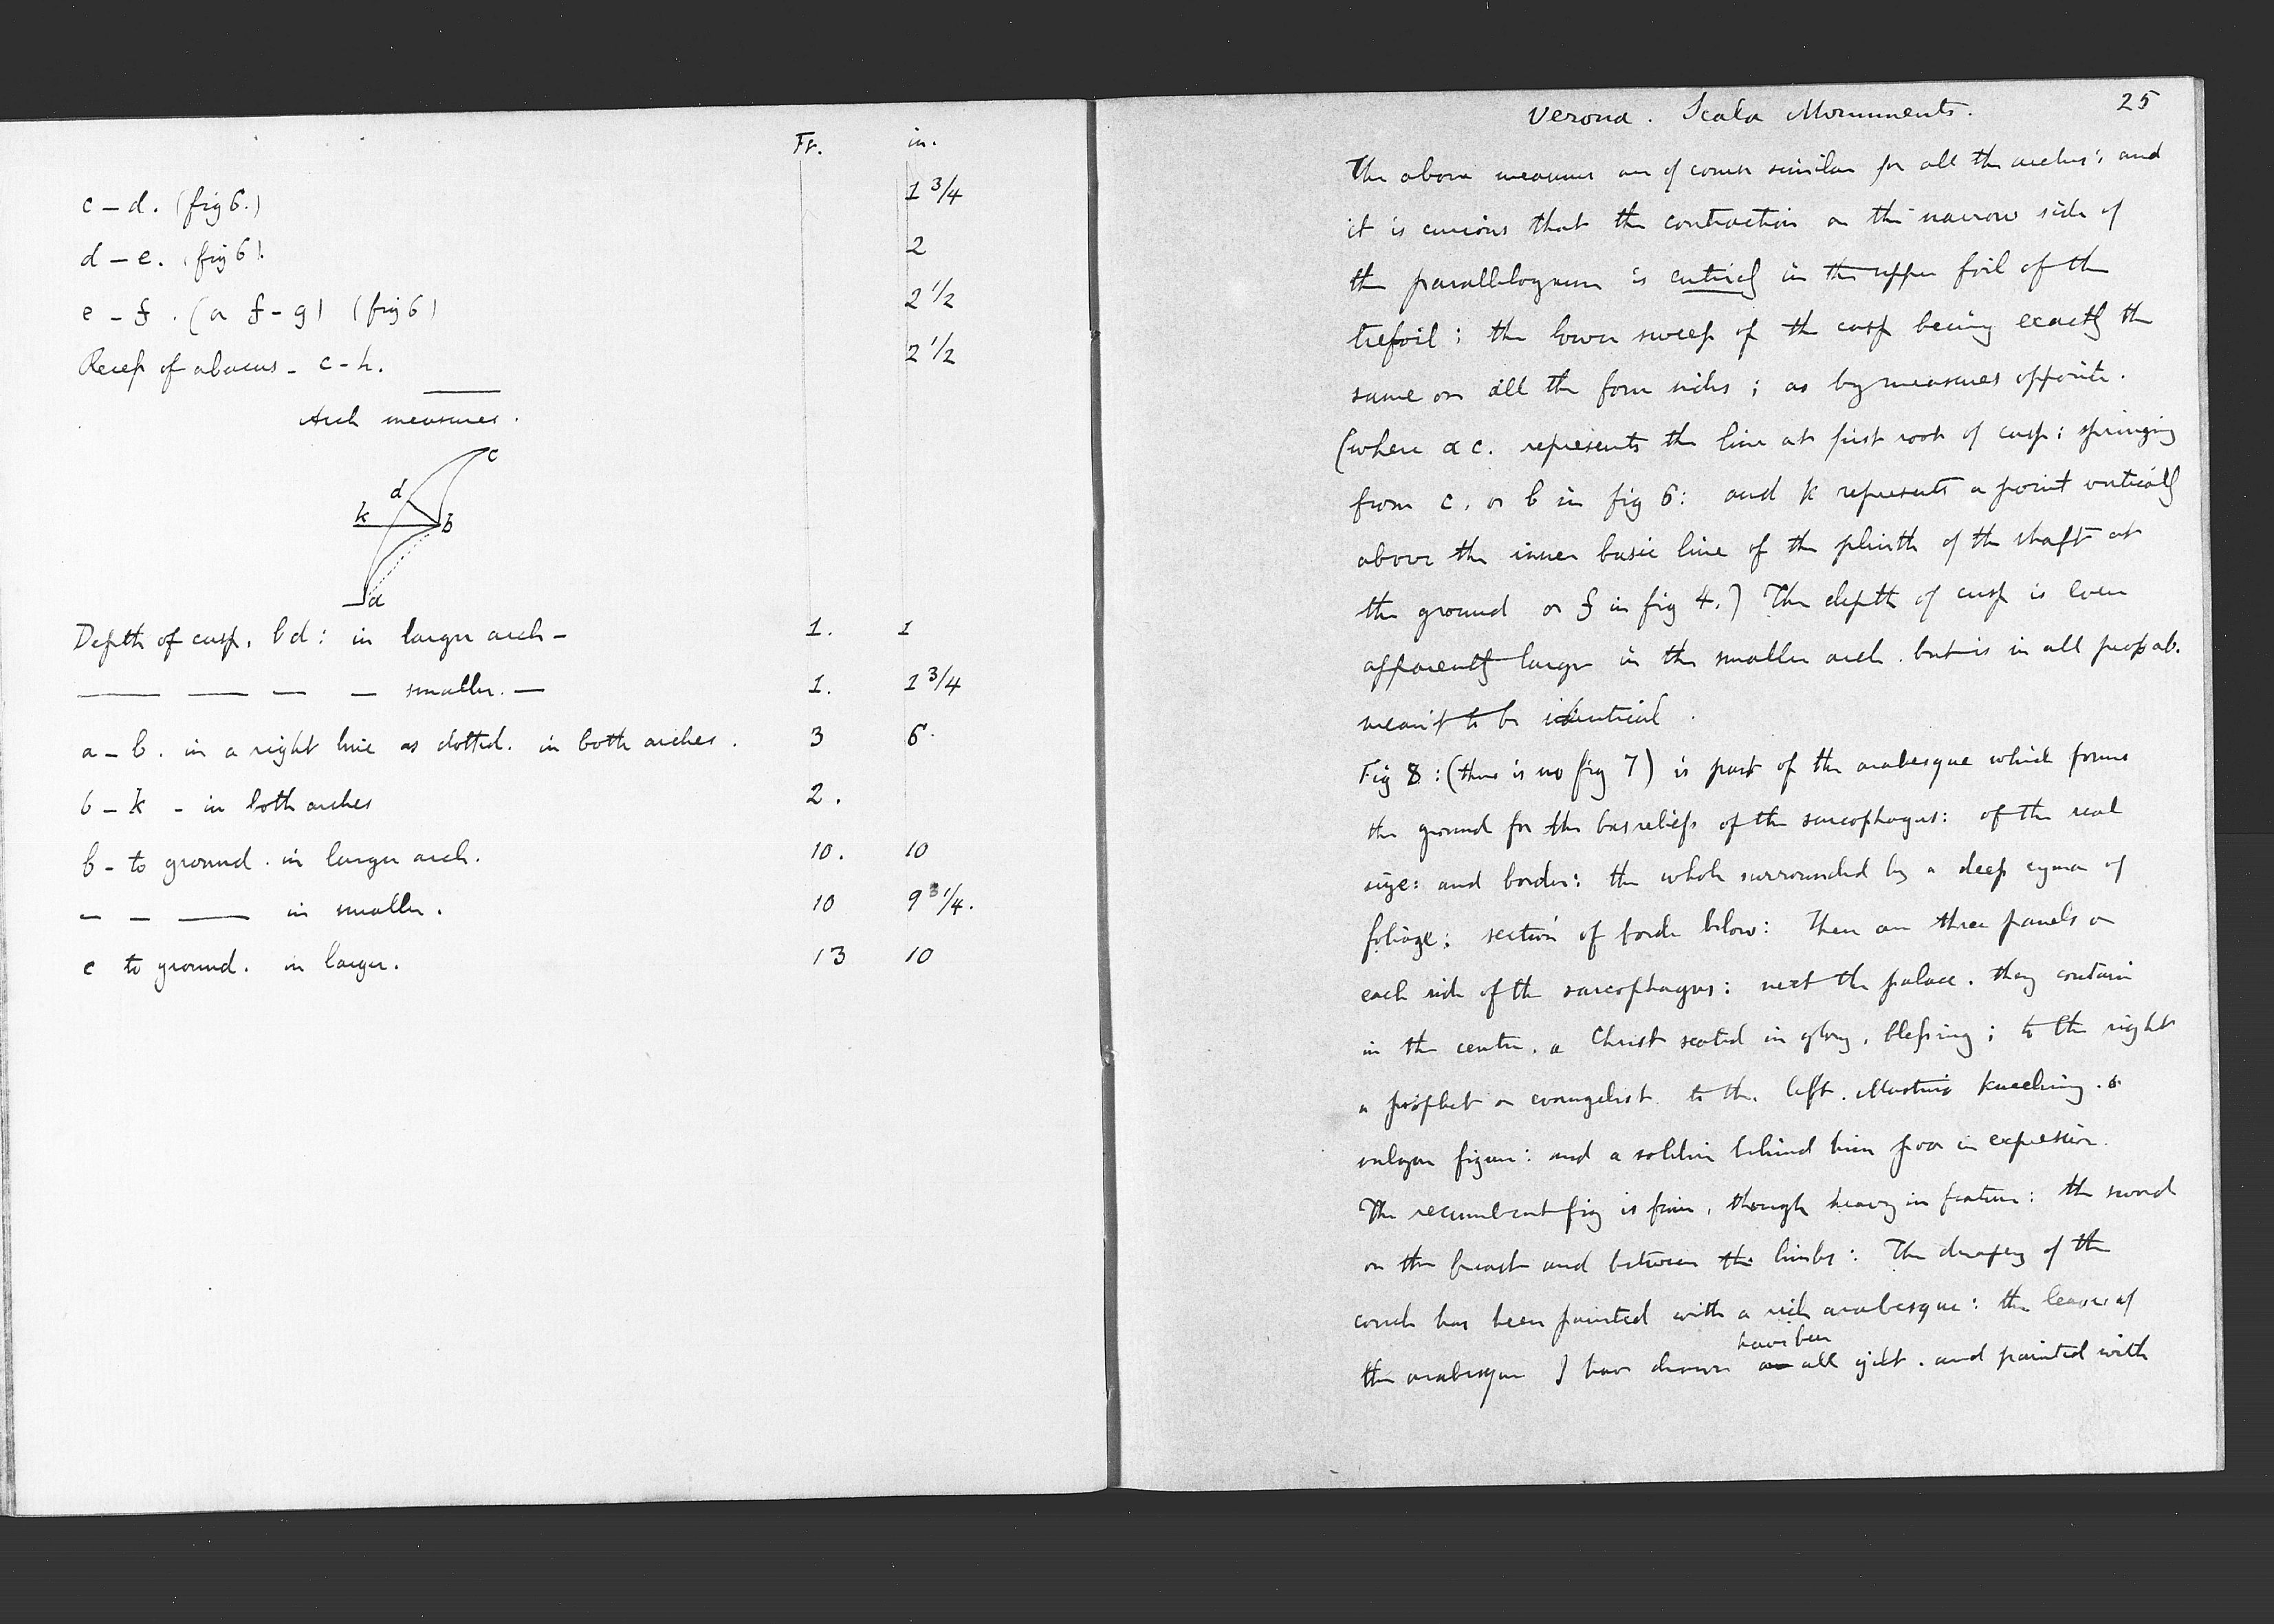 Ft. in.
c - d. (fig 6.) 1 3/4
d - e. (fig 6). 2
e - f. (or f - g) (fig 6) 2 1/2
Recess of abacus - c - h. 2 1/2
Arch measures.
c
d
k b
a
Depth of cusp, bd: in larger arch - 1. 1
— — — — smaller. — 1. 1 3/4
a - b. in a right line as dotted. in both arches. 3 6.
b - k - in both arches 2.
b - to ground. in larger arch. 10. 10
— — — in smaller. 10 9 1/4.
c to ground. in larger. 13 10
Verona. Scala Monuments. 25
The above measures are of course similar for all the arches: and
it is curious that the contraction on the narrow side of
the parallelogram is entirely in the upper foil of the
trefoil: the lower sweep of the cusp being exactly the
same on all the four sides; as by measures opposite.
(where a c. represents the line at first root of cusp: springing
from c. or b in fig 6: and k represents a point vertically
above the inner basic line of the plinth of the shaft at
the ground or f in fig 4.) The depth of cusp is even
apparently larger in the smaller arch. but is in all probab.
meant to be identical.
Fig 8: (there is no fig 7) is part of the arabesque which forms
the ground for the basreliefs of the sarcophagus: of the real
size: and border: the whole surrounded by a deep cyma of
foliage: section of border below: There are three panels on
each side of the sarcophagus: next the palace. they contain
in the centre. a Christ seated in glory, blessing; to the right
a prophet or evangelist to the. left. Mastino kneeling. a
vulgar figure: and a soldier behind him poor in expression.
The recumbent fig is fine, though heavy in feature: the sword
on the breast and between the limbs: The drapery of the
couch has been painted with a rich arabesque: the leaves of
have been
the arabesque I have drawn are all gilt. and painted with